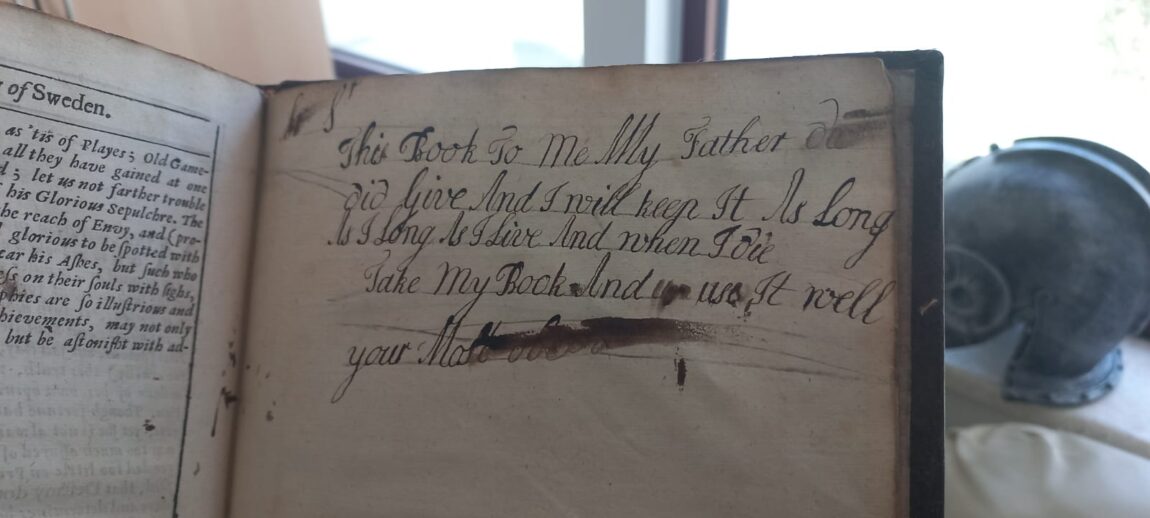 of Sweden.
as 'tis of Playes; Old Game-
all they have gained at one
; let us not farther trouble
his Glorious Sepulchre. The
the reach of Envy, and (pro-
glorious to be ſpotted with
ear his Aſhes, but ſuch who
eſs on their ſouls with ſighs,
phies are ſo illuſtrious and
hievements, may not only
but be aſtoniſht with ad-
This Book To Me My Father
did Give And I will keep It As Long
As I Long As I Live And when I die
Take My Book And use It well
your Most